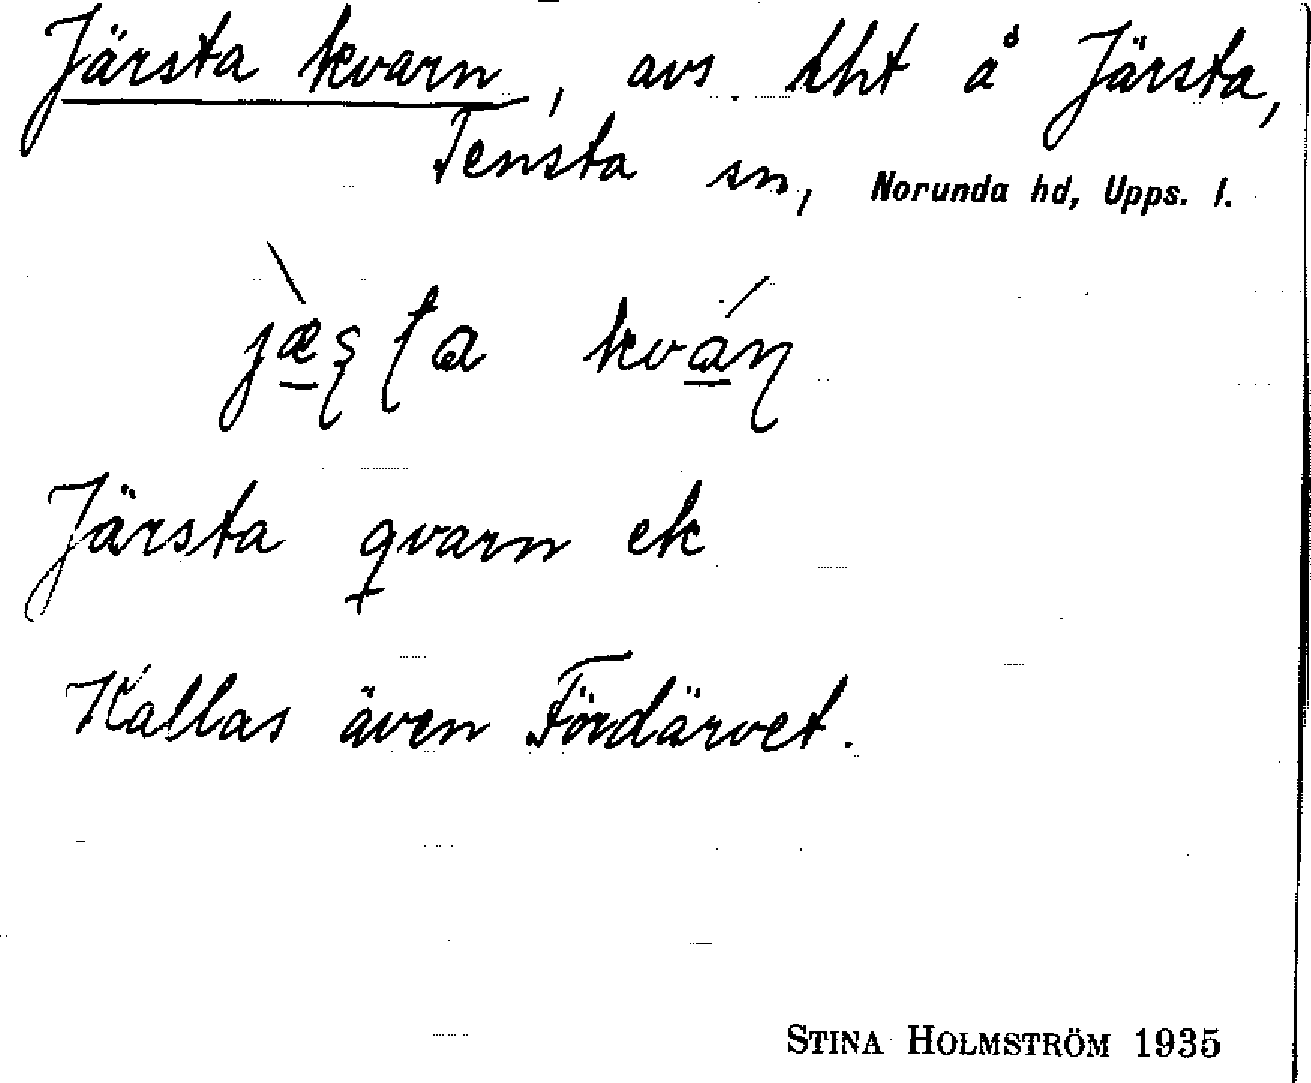 Järsta kvarn, avs. lht å Järsta,
Tensta sn, Norunda hd, Upps. l.
jæ̀ṣṭa kváṇ
Järsta qvarn ek
Kallas även Fördärvet.
STINA HOLMSTRÖM 1935